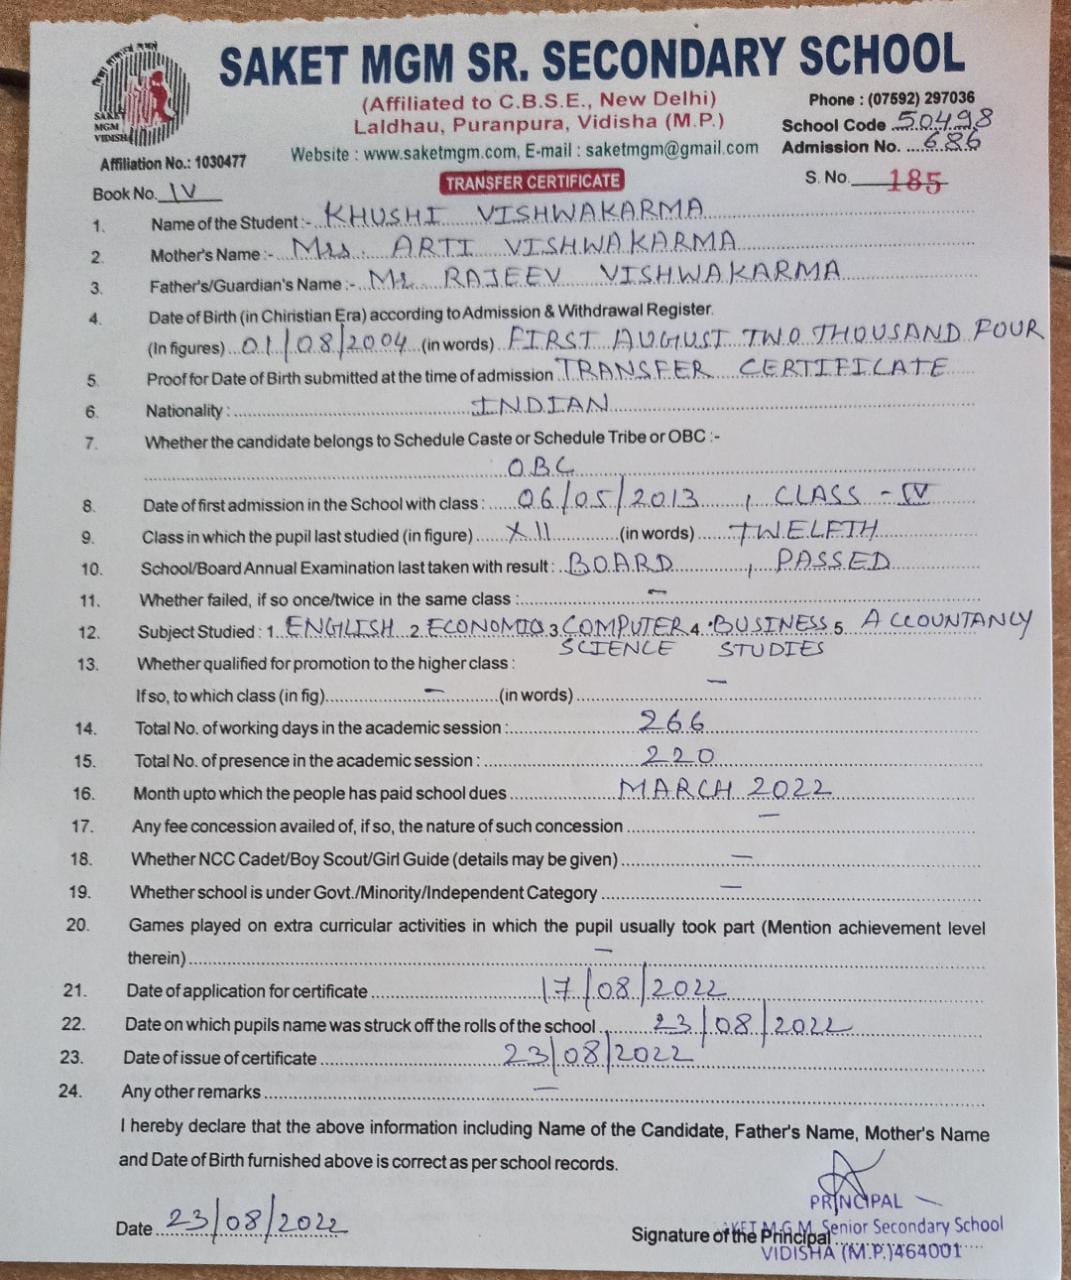 SAKET MGM SR. SECONDARY SCHOOL
SAKET
MGM
VIDISHA
(Affiliated to C.B.S.E., New Delhi)
Laldhau, Puranpura, Vidisha (M.P.)
Phone : (07592) 297036
School Code 50498
Admission No. 686
Affiliation No.: 1030477
Website : www.saketmgm.com, E-mail : saketmgm@gmail.com
Book No. IV
TRANSFER CERTIFICATE
S. No. 185
1. Name of the Student :- KHUSHI VISHWAKARMA
2. Mother's Name :- Mrs. ARTI VISHWAKARMA
3. Father's/Guardian's Name :- Mr. RAJEEV VISHWAKARMA
4. Date of Birth (in Chiristian Era) according to Admission & Withdrawal Register.
(In figures) 01/08/2004 (in words) FIRST AUGUST TWO THOUSAND FOUR
5. Proof for Date of Birth submitted at the time of admission TRANSFER CERTIFICATE
6. Nationality : INDIAN
7. Whether the candidate belongs to Schedule Caste or Schedule Tribe or OBC :-
OBC
8. Date of first admission in the School with class : 06/05/2013, CLASS - IV
9. Class in which the pupil last studied (in figure) XII (in words) TWELFTH
10. School/Board Annual Examination last taken with result : BOARD, PASSED
11. Whether failed, if so once/twice in the same class : -
12. Subject Studied : 1. ENGLISH 2. ECONOMICS 3. COMPUTER 4. BUSINESS 5. ACCOUNTANCY
SCIENCE STUDIES
13. Whether qualified for promotion to the higher class :
If so, to which class (in fig) - (in words) -
14. Total No. of working days in the academic session : 266
15. Total No. of presence in the academic session : 220
16. Month upto which the people has paid school dues MARCH 2022
17. Any fee concession availed of, if so, the nature of such concession -
18. Whether NCC Cadet/Boy Scout/Girl Guide (details may be given) -
19. Whether school is under Govt./Minority/Independent Category -
20. Games played on extra curricular activities in which the pupil usually took part (Mention achievement level
therein) -
21. Date of application for certificate 17/08/2022
22. Date on which pupils name was struck off the rolls of the school 23/08/2022
23. Date of issue of certificate 23/08/2022
24. Any other remarks -
I hereby declare that the above information including Name of the Candidate, Father's Name, Mother's Name
and Date of Birth furnished above is correct as per school records.
PRINCIPAL
Date 23/08/2022
Signature of the Principal
M.G.M. Senior Secondary School
VIDISHA (M.P.) 464001